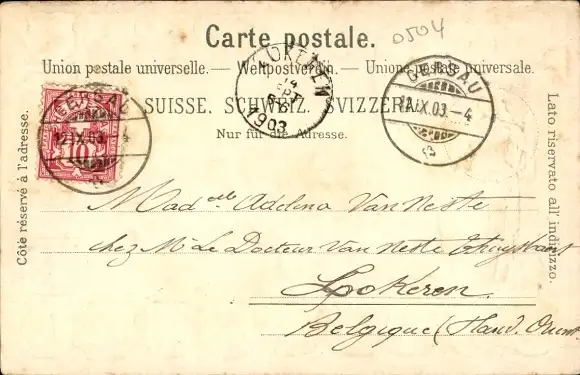 0504
Carte postale.
Union postale universelle. — Weltpostverein. — Unione postale universale.
SUISSE. SCHWEIZ. SVIZZERA.
Nur für die Adresse.
Côté réservé à l'adresse.
Lato riservato all'indirizzo.
GERSAU
12.IX.03.-4
10
LOKEREN
SEPT
1903
GERSAU
12.IX.03.-4
Mad elle Adelina Van Neste
chez Mr Le Docteur Van Neste
Lokeren.
Belgique (Fland. Orient